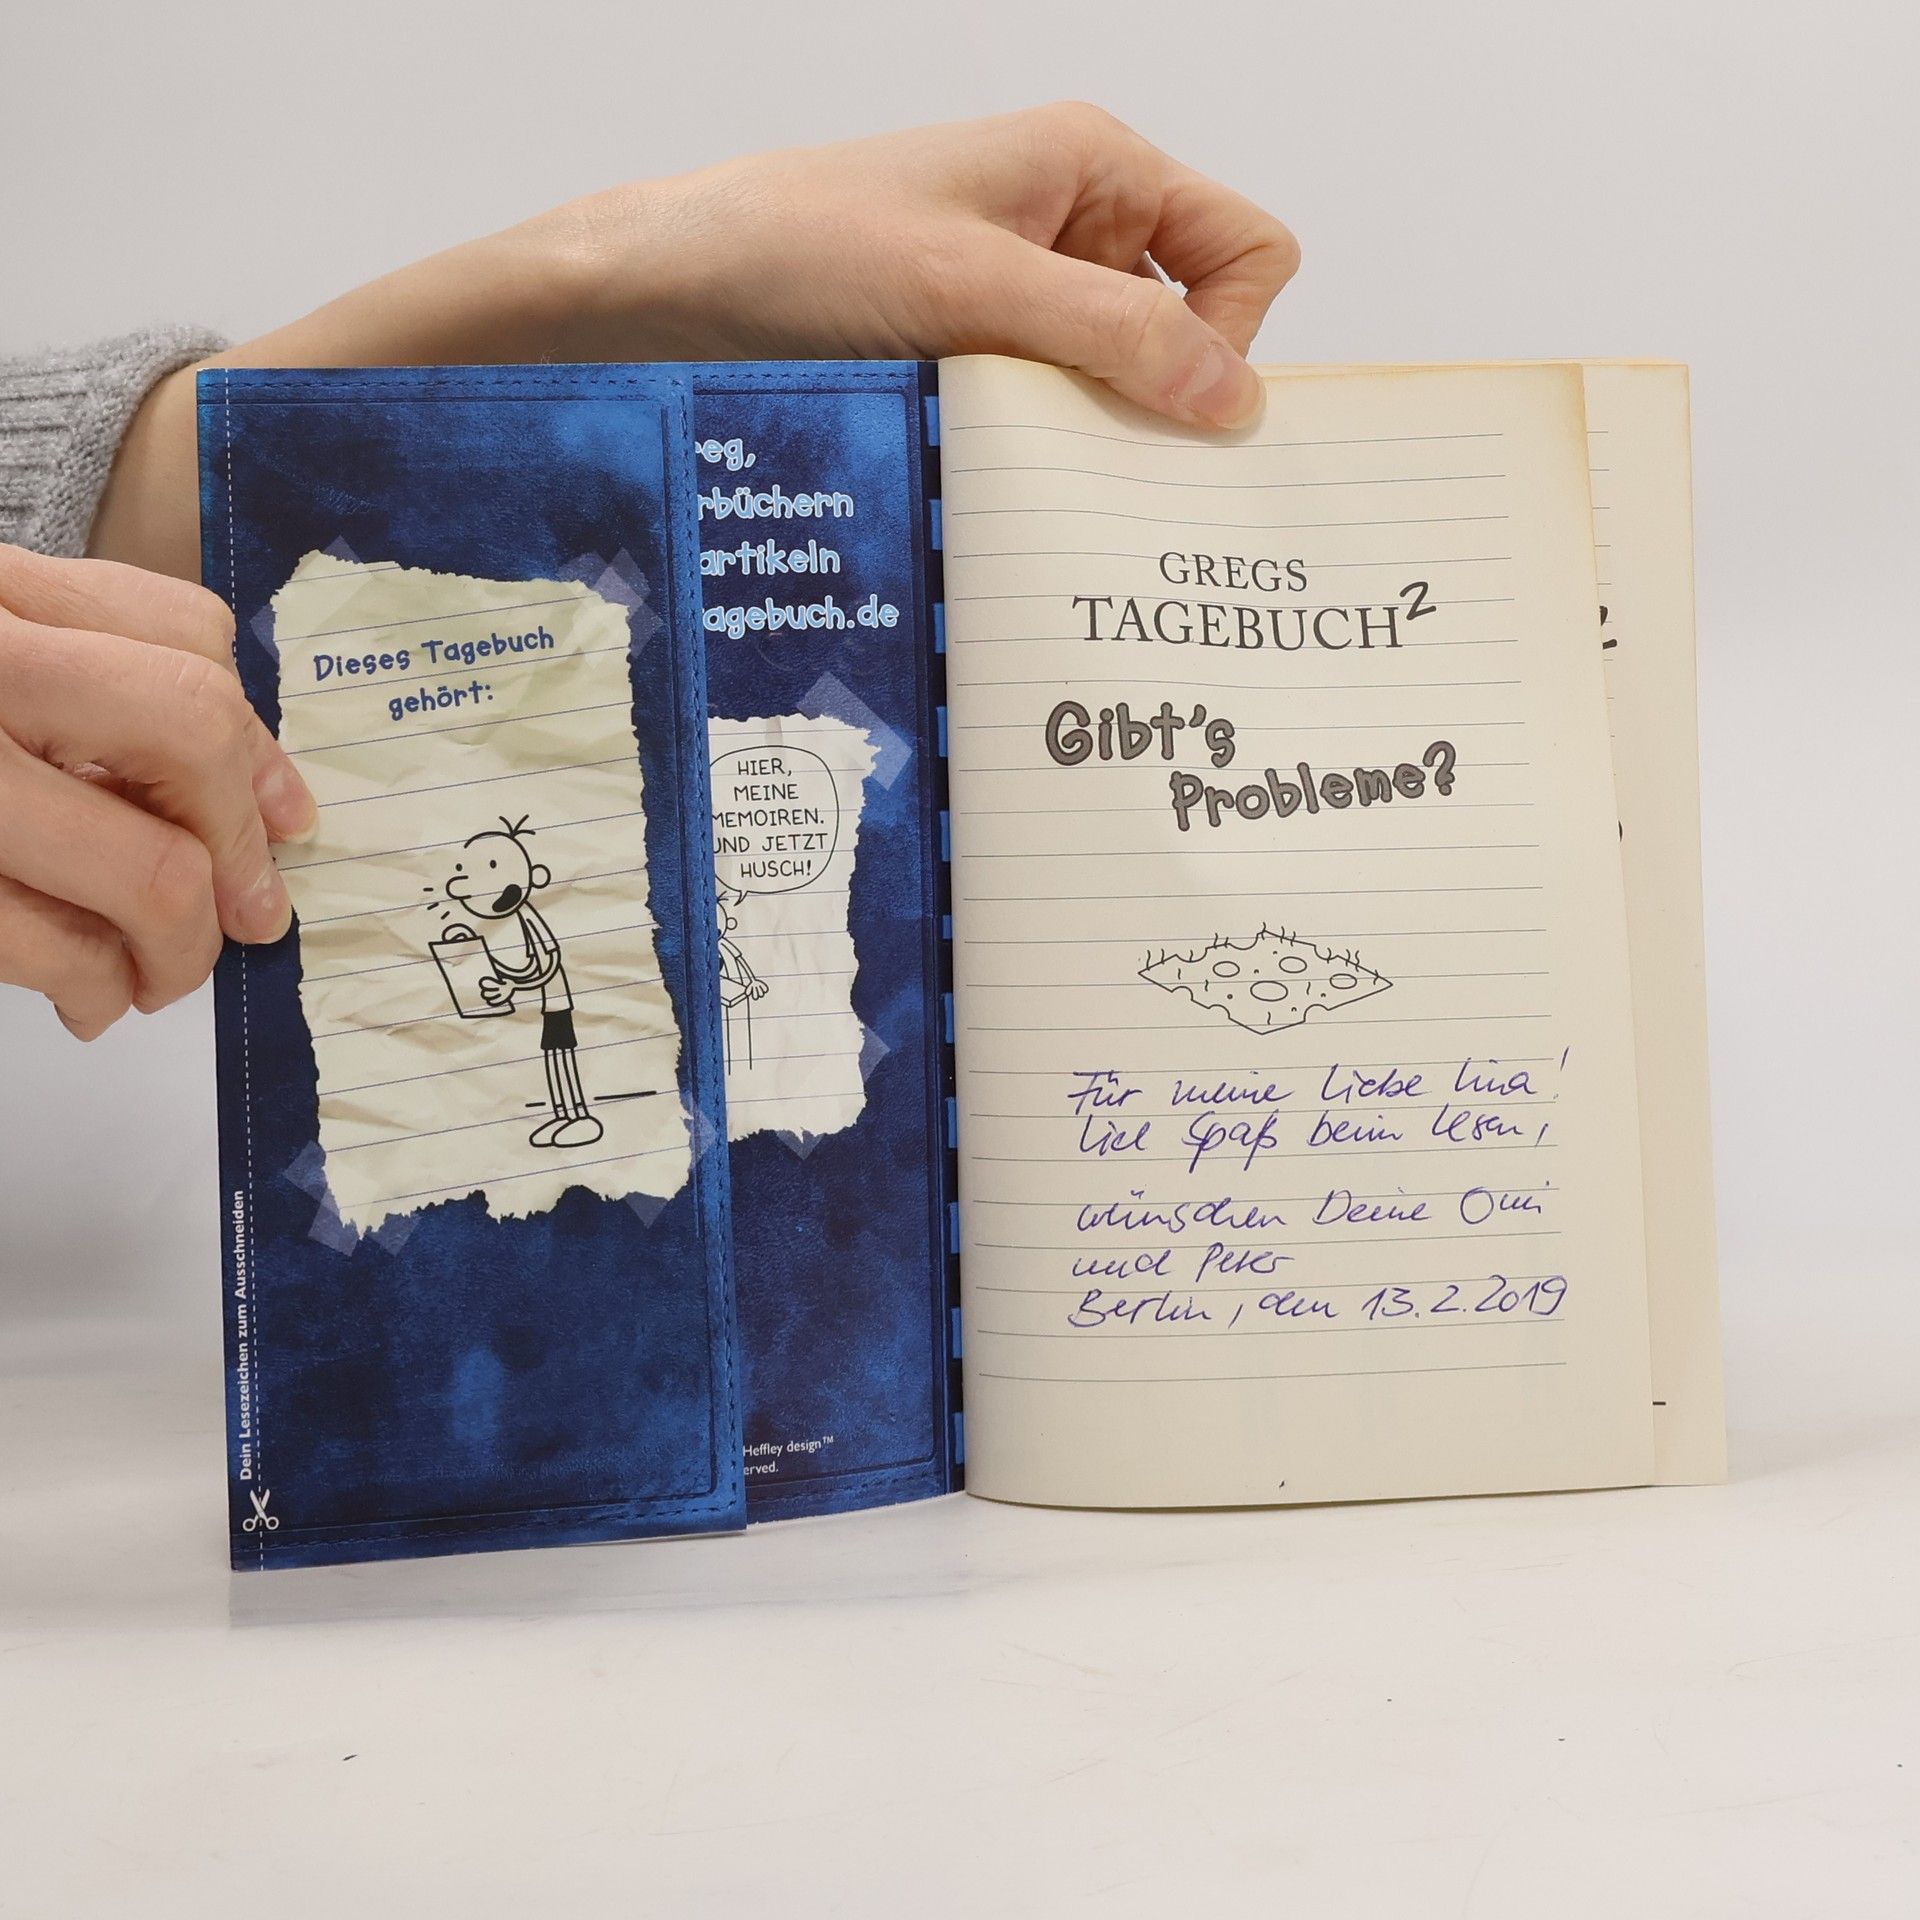 Dieses Tagebuch
gehört:
Dein Lesezeichen zum Ausschneiden
reg,
rbüchern
artikeln
tagebuch.de
HIER,
MEINE
MEMOIREN.
UND JETZT
HUSCH!
Heffley design™
erved.
GREGS
TAGEBUCH2
Gibt's
Probleme?
Für meine liebe Lina!
Viel Spaß beim Lesen,
wünschen Deine Omi
und Peter
Berlin, den 13.2.2019